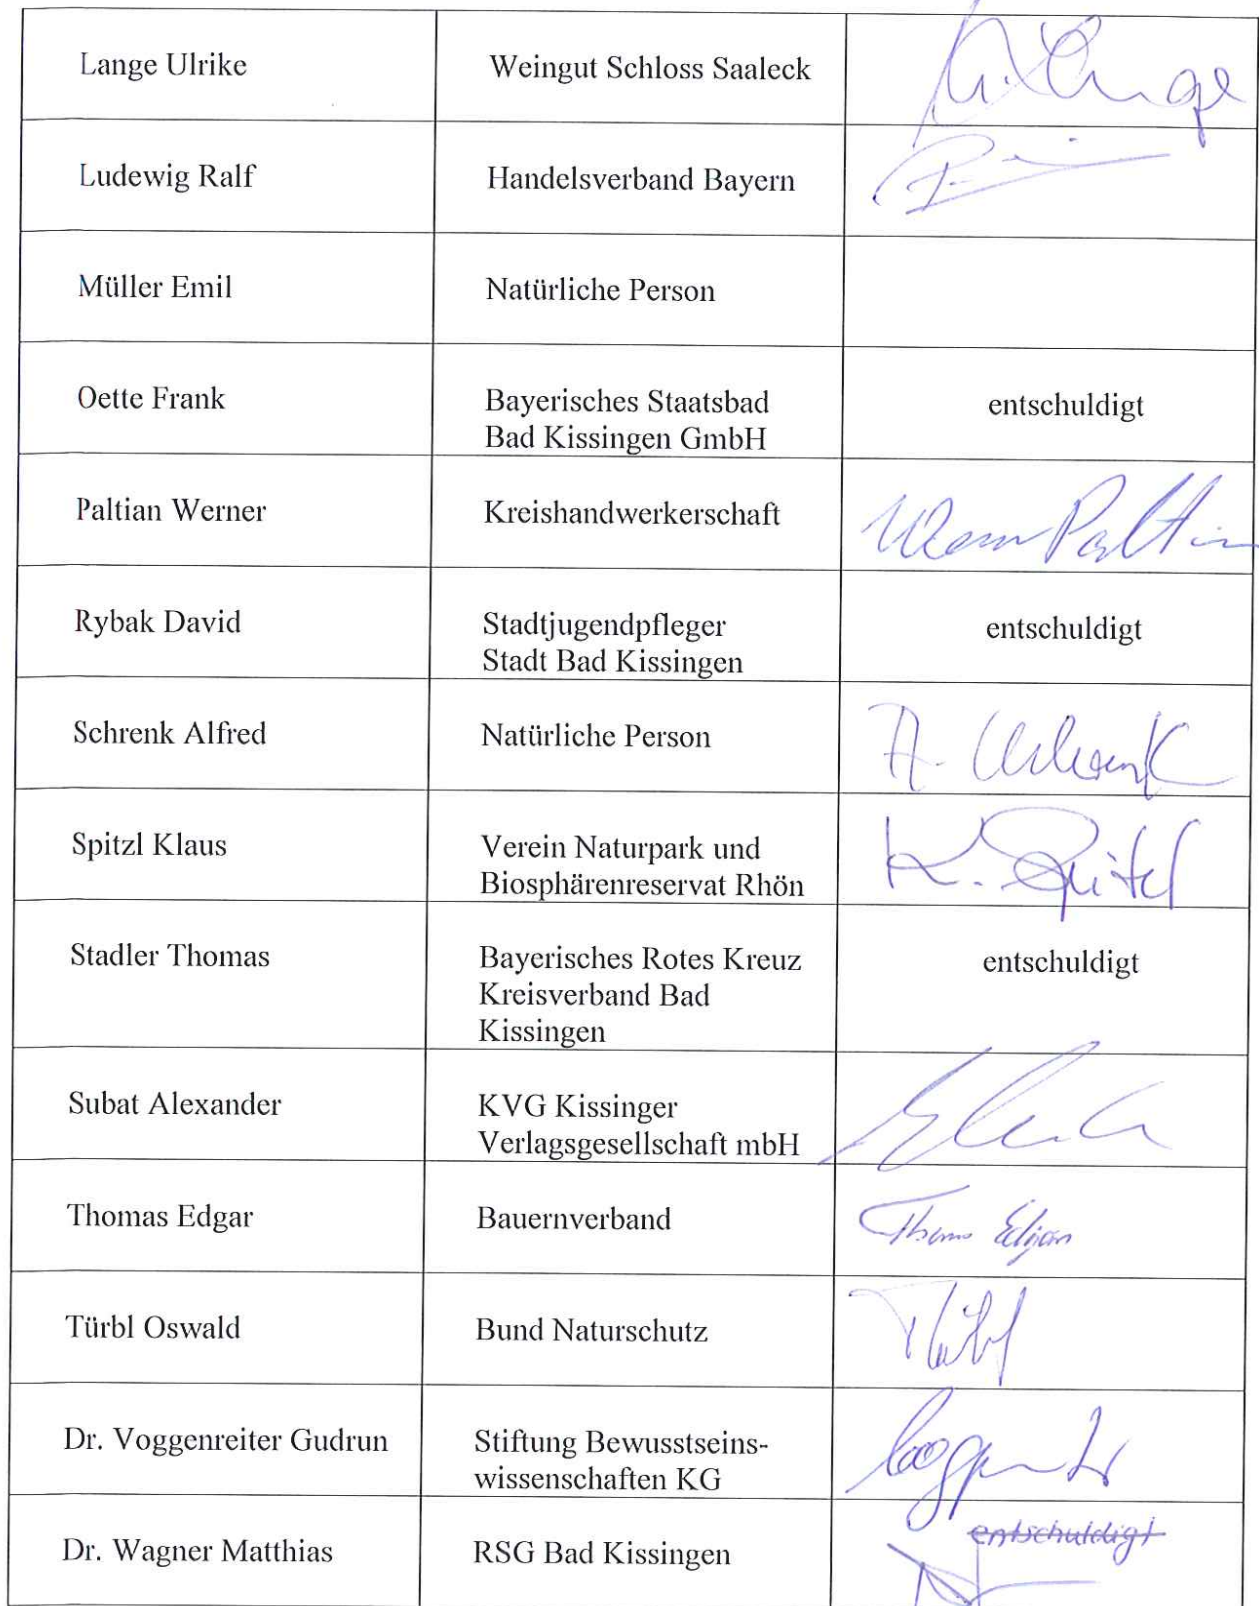 Lange Ulrike
Weingut Schloss Saaleck
U. Lange
Ludewig Ralf
Handelsverband Bayern
Müller Emil
Natürliche Person
Oette Frank
Bayerisches Staatsbad
Bad Kissingen GmbH
entschuldigt
Paltian Werner
Kreishandwerkerschaft
Werner Paltian
Rybak David
Stadtjugendpfleger
Stadt Bad Kissingen
entschuldigt
Schrenk Alfred
Natürliche Person
A. Schrenk
Spitzl Klaus
Verein Naturpark und
Biosphärenreservat Rhön
K. Spitzl
Stadler Thomas
Bayerisches Rotes Kreuz
Kreisverband Bad
Kissingen
entschuldigt
Subat Alexander
KVG Kissinger
Verlagsgesellschaft mbH
Thomas Edgar
Bauernverband
Thomas Edgar
Türbl Oswald
Bund Naturschutz
Türbl
Dr. Voggenreiter Gudrun
Stiftung Bewusstseins-
wissenschaften KG
Dr. Wagner Matthias
RSG Bad Kissingen
entschuldigt